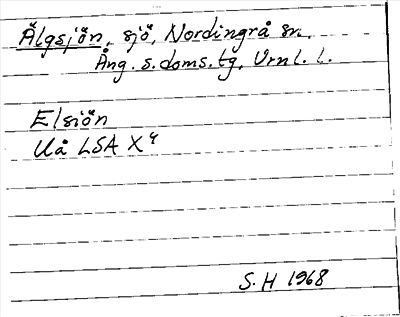 Älgsjön, sjö, Nordingrå sn.
Ång. s. doms. tg, Vrnl. l.
Elsiön
Uå LSA X4
S. H 1968